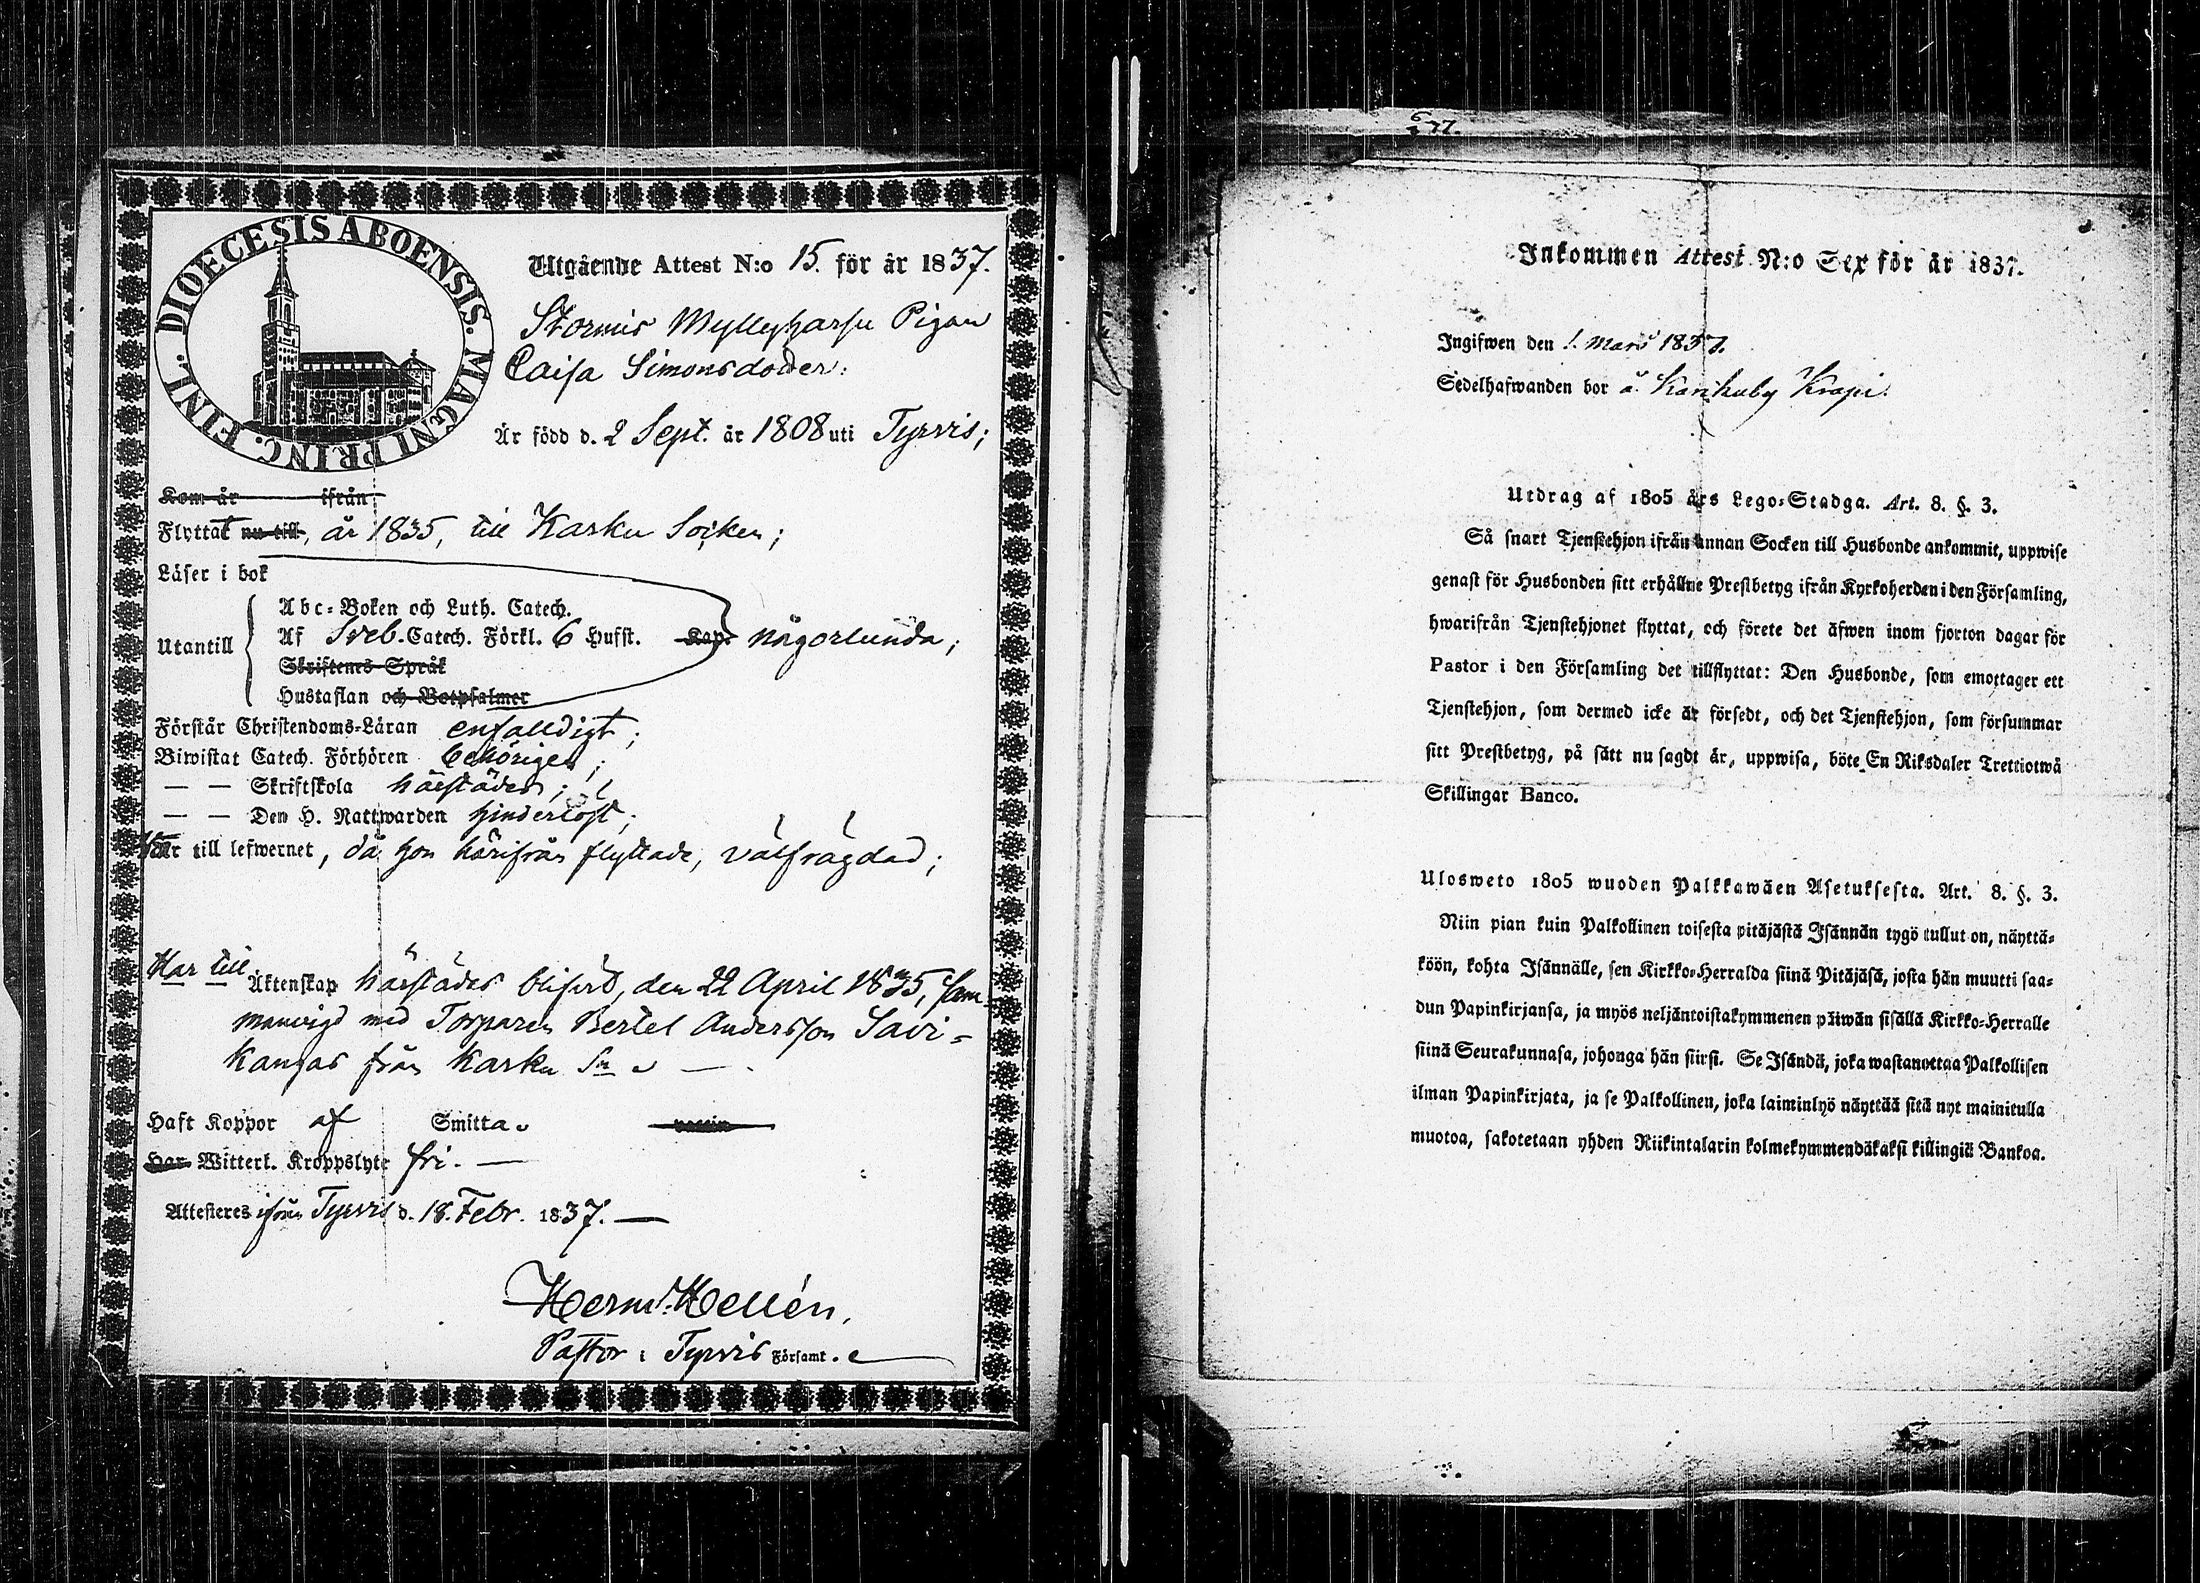 DIOECESIS ABOENSIS. MAGNI PRINC. FINL.
Utgående Attest N:o 15. för år 1837.
Stormis Myllyharju Pigan
Caisa Simonsdotter:
Är född d. 2 Sept. år 1808 uti Tyrvis;
Kom år ifrån
Flyttat nu till, år 1835, till Karku Socken;
Läser i bok
Utantill
Abc-Boken och Luth. Catech.
Af Sveb. Catech. Förkl. 6 Hufst. Kap. någorlunda;
Skriftenes Språk
Hustaflan och Botpsalmer
Förstår Christendoms-Läran enfaldigt;
Biwistat Catech. Förhören behörigen;
— — Skriftskola härstädes;
— — Den H. Nattwarden hinderlöst;
Var till lefwernet, då hon härifrån flyttade, välfrägdad;
Har till Äktenskap härstädes blifvit, den 22 April 1835, sam-
manvigd med Torparen Bertel Andersson Savi-
kangas från Karku Sn
Haft Koppor af Smitta.
Har Witterl. Kroppslyte fri. —
Attesteres ifrån Tyrvis d. 18. Febr. 1837. —
Herm. Hellén,
Pastor i Tyrvis Församl.
6
77.
Inkommen Attest N:o Sex för år 1837.
Ingifwen den 1. Mars 1837.
Sedelhafwanden bor å Karkuby Krapi.
Utdrag af 1805 års Lego-Stadga. Art. 8. §. 3.
Så snart Tjenstehjon ifrån annan Socken till Husbonde ankommit, uppwise
genast för Husbonden sitt erhållne Prestbetyg ifrån Kyrkoherden i den Församling,
hwarifrån Tjenstehjonet flyttat, och förete det äfwen inom fjorton dagar för
Pastor i den Församling det tillflyttat: Den Husbonde, som emottager ett
Tjenstehjon, som dermed icke är försedt, och det Tjenstehjon, som försummar
sitt Prestbetyg, på sätt nu sagdt är, uppwisa, böte En Riksdaler Trettiotwå
Skillingar Banco.
Ulosweto 1805 wuoden Palkkawäen Asetuksesta. Art. 8. §. 3.
Niin pian kuin Palkollinen toisesta pitäjästä Isännän tygö tullut on, näyttä-
köön, kohta Isännälle, sen Kirkko-Herralda siinä Pitäjäsä, josta hän muutti saa-
dun Papinkirjansa, ja myös neljäntoistakymmenen päiwän sisällä Kirkko-Herralle
siinä Seurakunnasa, johonga hän siirsi. Se Isändä, joka wastanottaa Palkollisen
ilman Papinkirjata, ja se Palkollinen, joka laiminlyö näyttää sitä nyt mainitulla
muotoa, sakotetaan yhden Riikintalarin kolmekymmendäkaksi killingiä Bankoa.